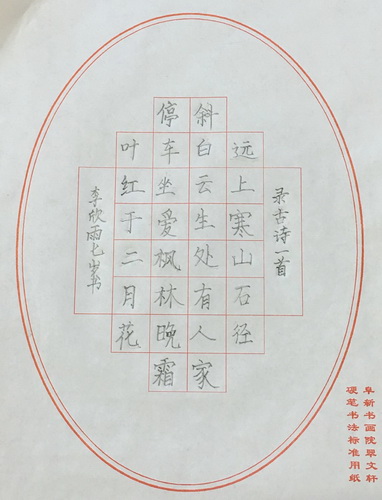 录古诗一首
远上寒山石径
斜白云生处有人家
停车坐爱枫林晚霜
叶红于二月花
李欣雨七岁书
阜新书画院翠文轩
硬笔书法标准用纸